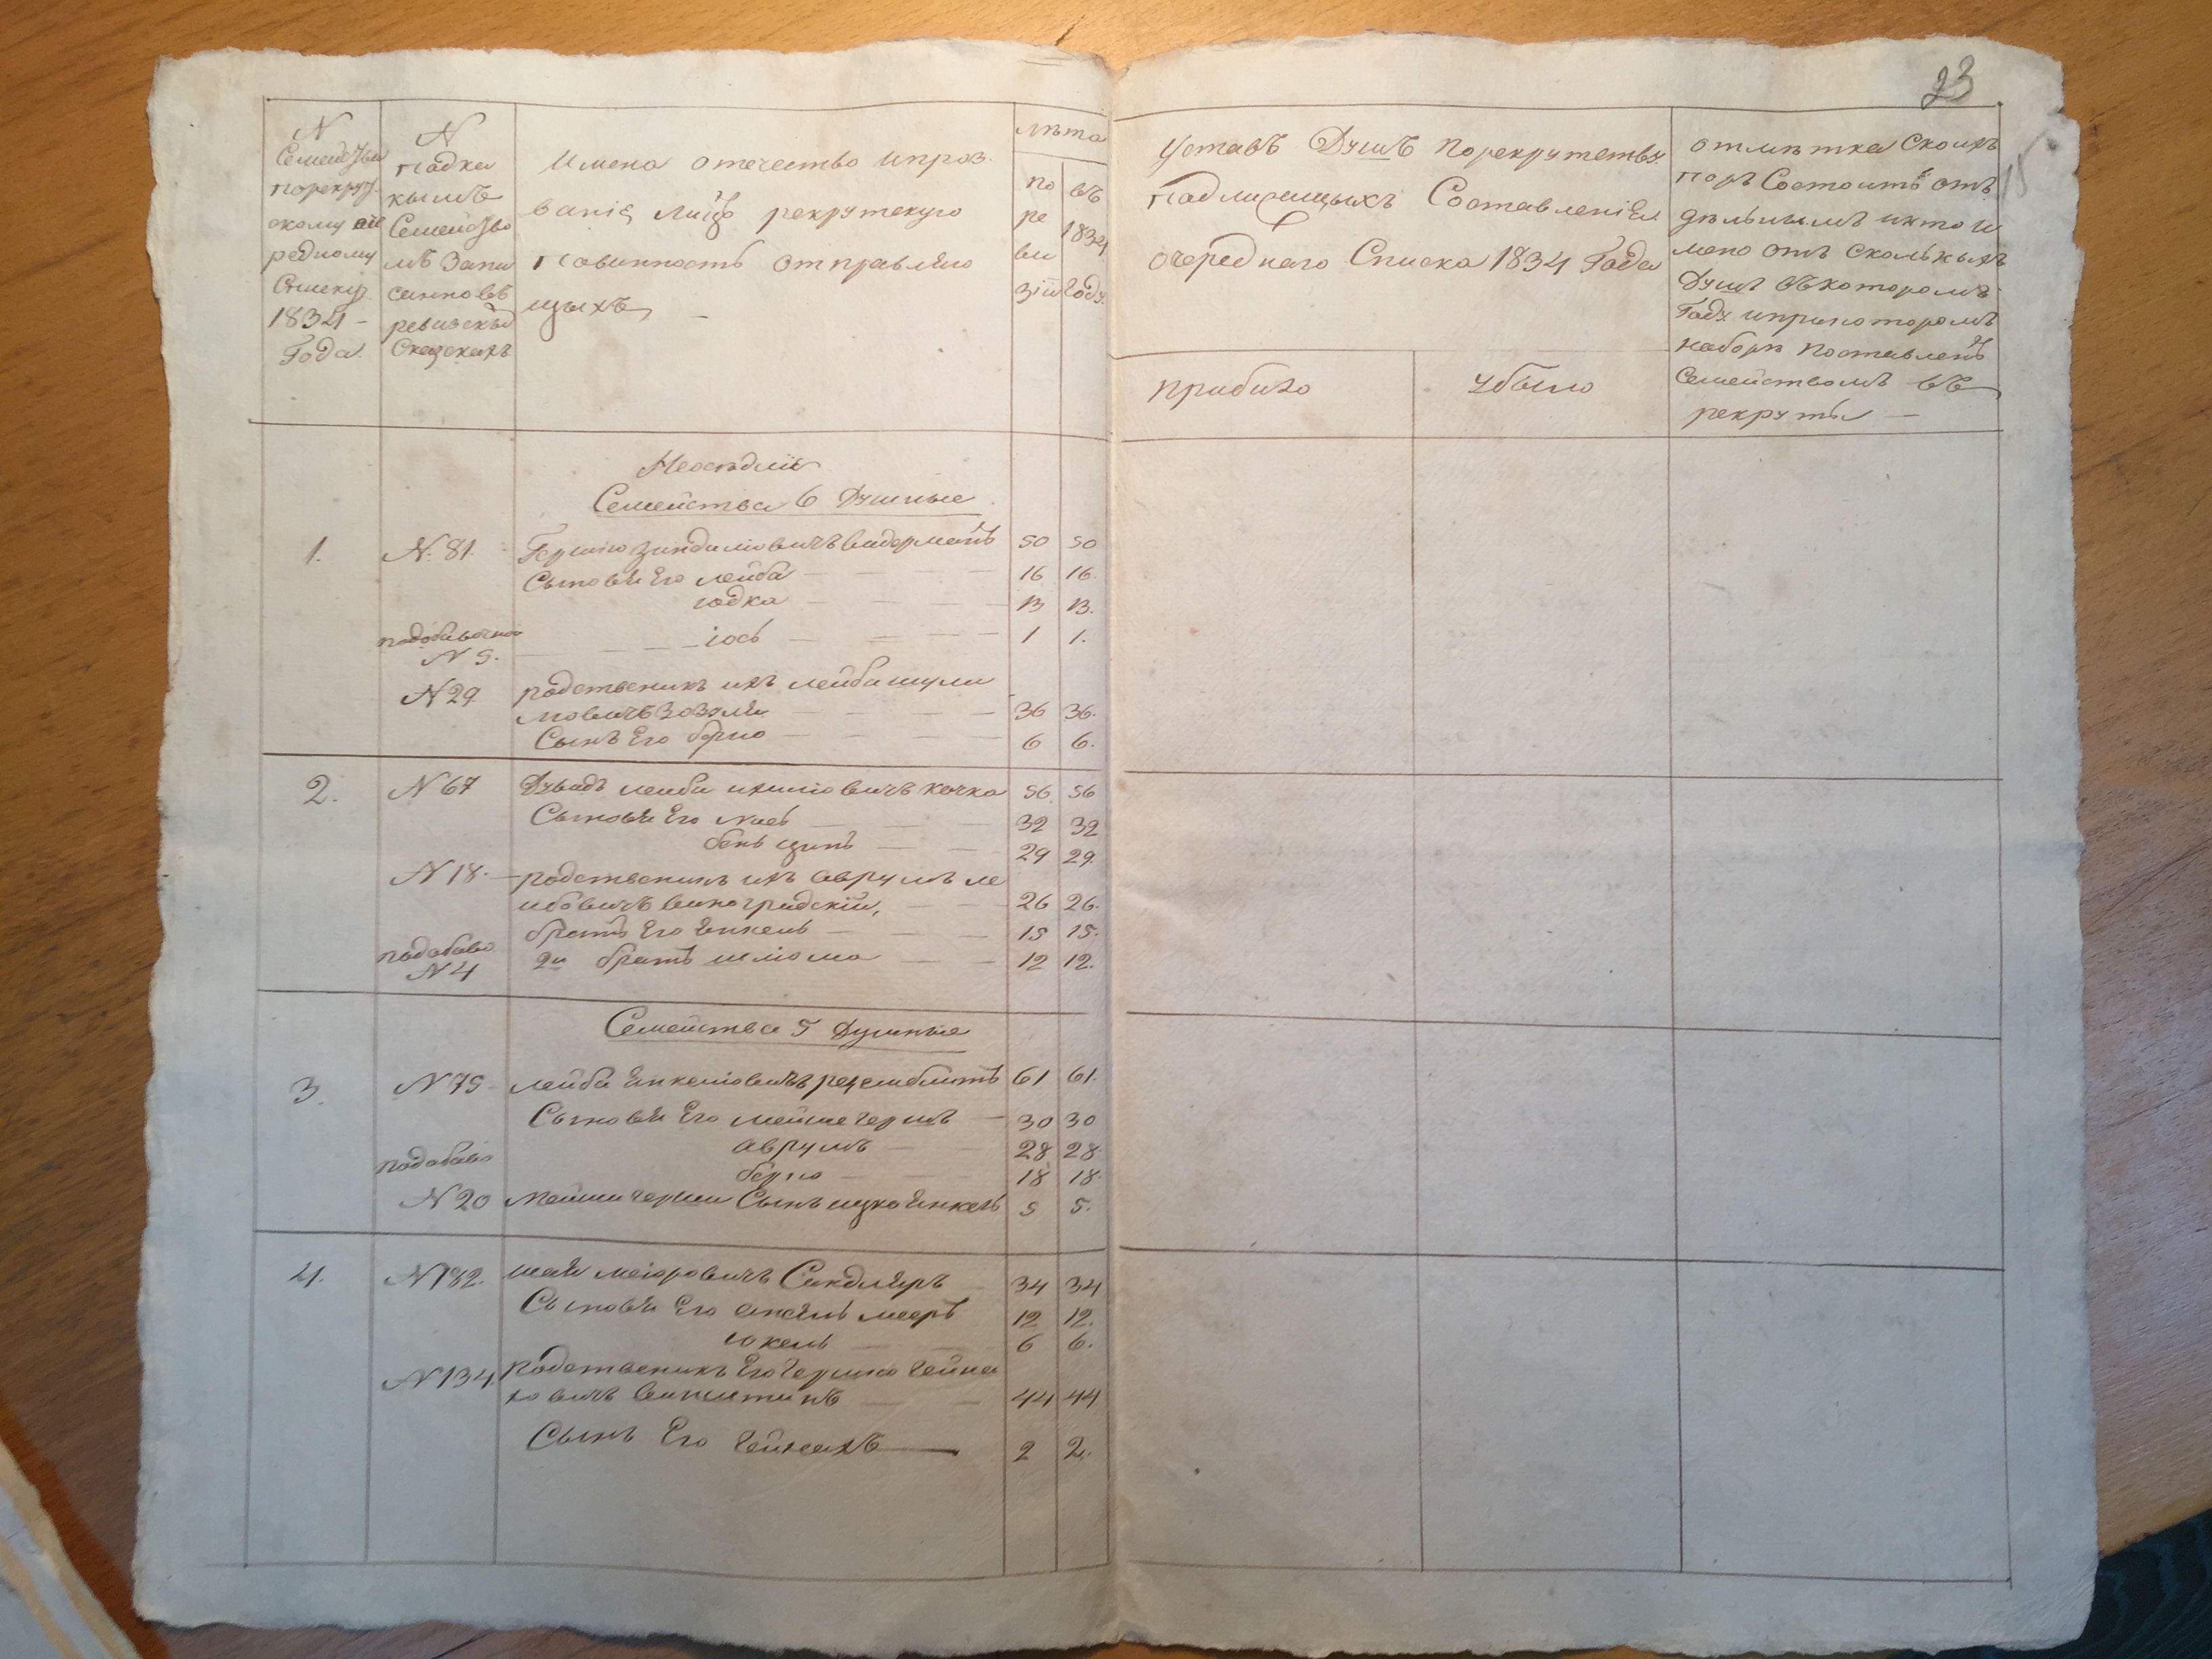 23
N
Семейства
порекрут
скому оче
редному
Списку
1834 –
Года.
N
подка
кымъ
Семейство
мъ запи
санновъ
ревизскыхъ
Сказкахъ
Имена отечество ипроз
ванія лицъ рекрутскую
повинность отправляю
щыхъ –
лѣта
по
ре
ви
зіи
въ
1834
Году.
Уставъ Душъ порекрутству
подлижащыхъ Составленія
очереднаго Списка 1834 Года
прибило
убыло
отмѣткаСкоихъ
поръ Состоитъ отъ
дѣльнымъ икто и
мено отъ сколькыхъ
Душъ въкоторомъ
Году иприкоторомъ
наборѣ поставленъ
Семействомъ въ
рекруты –
Неосѣдлыя
Семейства 6 Душные
1. N. 81. Гершко Зинделіовичъ Бидерманъ 50 50
Сыновья Его лейба 16 16.
юдка 13 13.
подобавочной іось 1 1.
N 5.
N 29 родственикъ ихъ лейба шули
мовичъ Зозуля 36 36.
Сынъ Его берко 6 6.
2. N 67 Дувидъ лейба ицковичъ кочка 56 56
Сыновья Его 32 32
бень ционъ 29 29.
N 18. – родственикъ ихъ аврумъ ле
йбовичъ виноградскій, 26 26.
братъ Его Янкель 15 15.
подобаво 2й братъ шліома 12 12.
N 4
Семейства 5 Душные
3. N 75 – лейба Янкеліовичъ 61 61.
Сыновья Его мейше герцъ 30 30
аврумъ 28 28
подобаво берко 18 18.
N 20 мейши герши Сынъ ицко Янкель 5 5.
4. N 182. шая меіоровичъ Сандляръ 34 34
Сыновья Его мееръ 12 12.
іокель 6 6.
N 134. родственикъ Его гершко гейна
ховичъ 44 44
Сынъ Его гейнахъ 2 2.